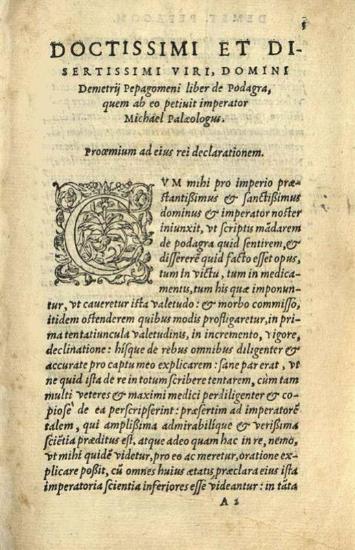 DOCTISSIMI ET DI-
SERTISSIMI VIRI, DOMINI
Demetrij Pepagomeni liber de Podagra,
quem ab eo petiuit imperator
Michael Palæologus.
Proœmium ad eius rei declarationem.
CVM mihi pro imperio præ-
stantißimus & sanctißimus
dominus & imperator noster
iniunxit, vt scriptis mãdarem
de podagra quid sentirem, &
dissererẽ quid facto esset opus,
tum in victu, tum in medica-
mentis, tum his quæ imponun
tur, vt caueretur ista valetudo: & morbo commisso,
itidem ostenderem quibus modis profligaretur, in pri
ma tentatiuncula valetudinis, in incremento, vigore,
declinatione: hísque de rebus omnibus diligenter &
accurate pro captu meo explicarem: sane parerat, vt
ne quid ista de re in totum scribere tentarem, cùm tam
multi veteres & maximi medici perdiligenter & co-
piosè de ea perscripserint: præsertim ad imperatorẽ
talem, qui amplißima admirabilique & verißima
sciẽtia præditus est, atque adeo quam hac in re, nemo,
vt mihi quidẽ videtur, pro eo ac meretur, oratione ex-
plicare poßit, cũ omnes huius ætatis præclara eius ista
imperatoria scientia inferiores esse videantur: in tãta
A 2